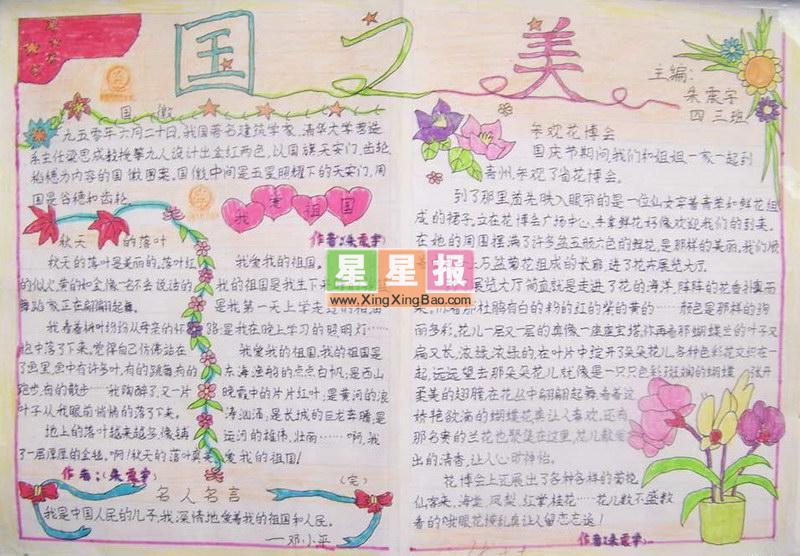 国之美
主编:
朱震宇
四三班
国徽
一九五零年六月二十日,我国著名建筑学家,清华大学营造
系主任梁思成教授等九人设计出金红两色,以国旗天安门,齿轮
和穗为内容的国徽图案。国徽中间是五星照耀下的天安门,周
围是谷穗和齿轮。
秋天的落叶
秋天的落叶是美丽的。落叶红
的似火,黄的如金,像一不会说话的
舞蹈家正在翩翩起舞。
我看着树叶纷纷从母亲的怀
抱中落了下来,觉得自己仿佛站在
了画里,画中有许多叶,有的跳舞有的
跑步,有的散步……我陶醉了,又一片
叶子从我眼前悄悄的落了下来。
地上的落叶越来越多,像铺
了一层厚厚的金毯。啊!秋天的落叶真美
作者:(朱震宇)
我爱祖国
作者:朱震宇
我爱我的祖国。
我的祖国是我生下来
是我第一天上学走过的
路;是我在晚上学习的照明灯……
我爱我的祖国,我的祖国是
东海渔船的点点白帆;是西山
晚霞中的片片红叶;是黄河的浪
涛汹涌;是长城的巨龙奔腾;是
运河的雄伟、壮丽……啊,我
爱我的祖国!
(完)
名人名言
我是中国人民的儿子,我深情地爱着我的祖国和人民。
——邓小平
参观花博会
国庆节期间,我们和姐姐一家一起到
青州,参观了省花博会。
到了那里首先映入眼帘的是一位仙女穿着青草和鲜花组
成的裙子,立在花博会广场中心,手拿鲜花好像欢迎我们的到来。
在她的周围摆满了许多盆五颜六色的鲜花,是那样的美丽。我们顺
着 上万盆菊花组成的长廊,进了花卉展览大厅。
展览大厅简直就是走进了花的海洋,阵阵的花香扑鼻而
来。你看那杜鹃有白的粉的红的紫的黄的……颜色是那样的绚
丽多彩。花儿一层又一层的真像一座座宝塔。你再看那蝴蝶兰的叶子又
扁又长,浓绿、浓绿的,在叶片中挺开朵朵花儿,各种色彩花交织在一
起,远远望去那朵朵花儿就像是一只只色彩斑斓的蝴蝶 张开
柔美的翅膀在花丛中翩翩起舞,看着这
娇艳欲滴的蝴蝶花真让人喜欢,还有
那名贵的兰花也聚集在这里,花儿散发
出的清香,让人心旷神怡。
花博会上还展出了各种各样的菊花、
仙客来,海棠,凤梨,红掌,桂花……花儿数不盛数
香的
真让人留恋忘返!
作者:朱震宇
星星报
www.XingXingBao.com